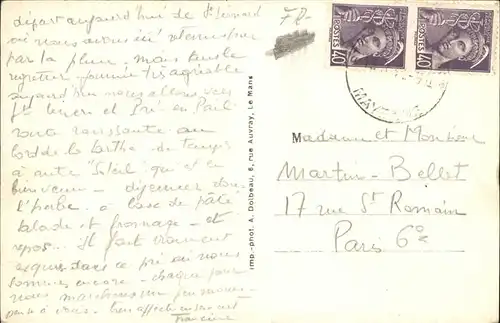 départ aujourd'hui de St Léonard
où nous avons été retenus hier
par la pluie, mais sans le
regretter - journée très agréable
aujourd'hui nous allons vers
et Pré en Pail
route ravissante au
bord de la Sarthe - du temps
"soleil" qui est
bienvenu - déjeuner dans
l'herbe à base de pâté
salade et fromage - et
repos... Il fait vraiment
exquis dans ce pré où nous
sommes encore - chaque jour
nous marchons un peu moins
à vous - bien affectueusement
Francine
72-
Imp.-phot. A. Dolbeau, 6, rue Auvray, Le Mans
POSTES
40
POSTES
40
MAYENNE
Madame et Monsieur
Martin-Bellet
17 rue St Romain
Paris 6e